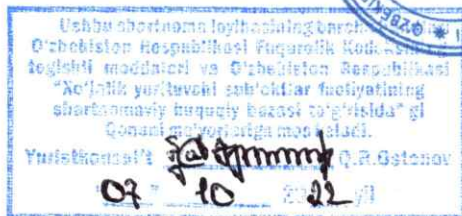 Ushbu shartnoma loyihasining barcha
O'zbekiston Respublikasi Fuqarolik Kodeksining
tegishli moddalari va O'zbekiston Respublikasi
"Xo'jalik yurituvchi sub'ektlar faoliyatining
shartnomaviy huquqiy bazasi to'g'risida" gi
Qonuni me'yorlariga mos keladi.
Yuristkonsul't Q.R.Ostonov
07 10 22 yil